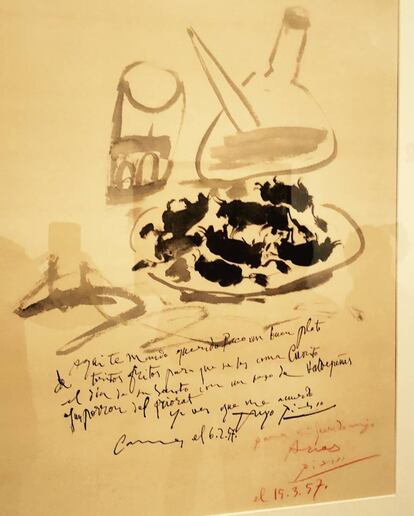 Aqui te mando querido Paco un buen plato
de toritos fritos para que se los coma
el dia de su Santo con un vaso de Valdepeñas
y un porron del priorat
ya ves que me acuerdo
tuyo Picasso
Cannes el 6.2.57.
para mi querido amigo
Arias
Picasso
el 19.3.57.